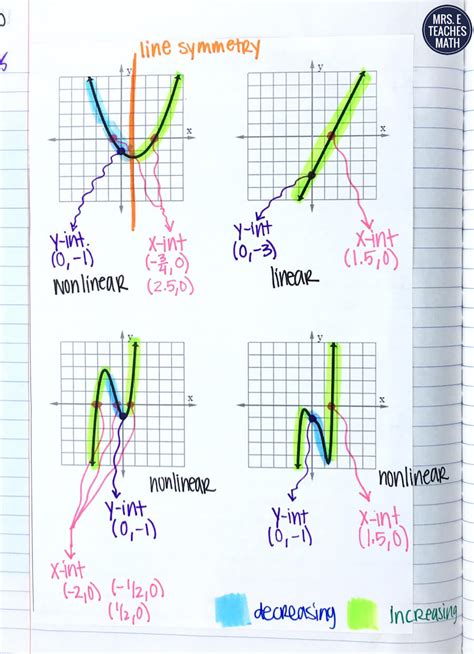 MRS. E
TEACHES
MATH
line symmetry
y
x
y
x
y-int
(0,-1)
x-int
(-3/4,0)
(2.5,0)
nonlinear
y-int
(0,-3)
x-int
(1.5,0)
linear
y
x
y
x
nonlinear
y-int
(0,-1)
x-int
(-2,0) (-1/2,0)
(1/2,0)
nonlinear
y-int
(0,-1)
x-int
(1.5,0)
decreasing
Increasing